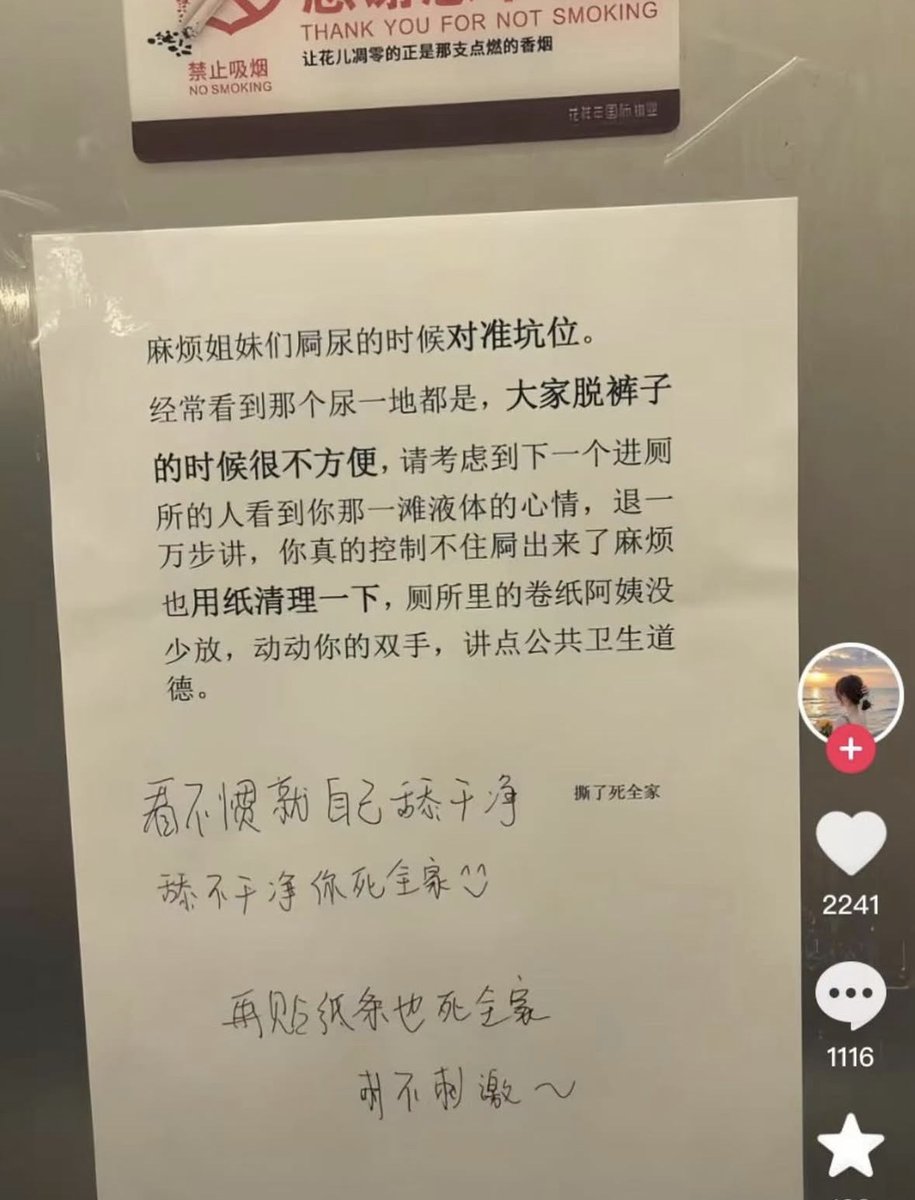 THANK YOU FOR NOT SMOKING
让花儿凋零的正是那支点燃的香烟
禁止吸烟
NO SMOKING
麻烦姐妹们屙尿的时候对准坑位。
经常看到那个尿一地都是，大家脱裤子
的时候很不方便，请考虑到下一个进厕
所的人看到你那一滩液体的心情，退一
万步讲，你真的控制不住屙出来了麻烦
也用纸清理一下，厕所里的卷纸阿姨没
少放，动动你的双手，讲点公共卫生道
德。
看不惯就自己舔干净
撕了死全家
舔不干净你死全家
再贴纸条也死全家
刺不刺激～
2241
1116